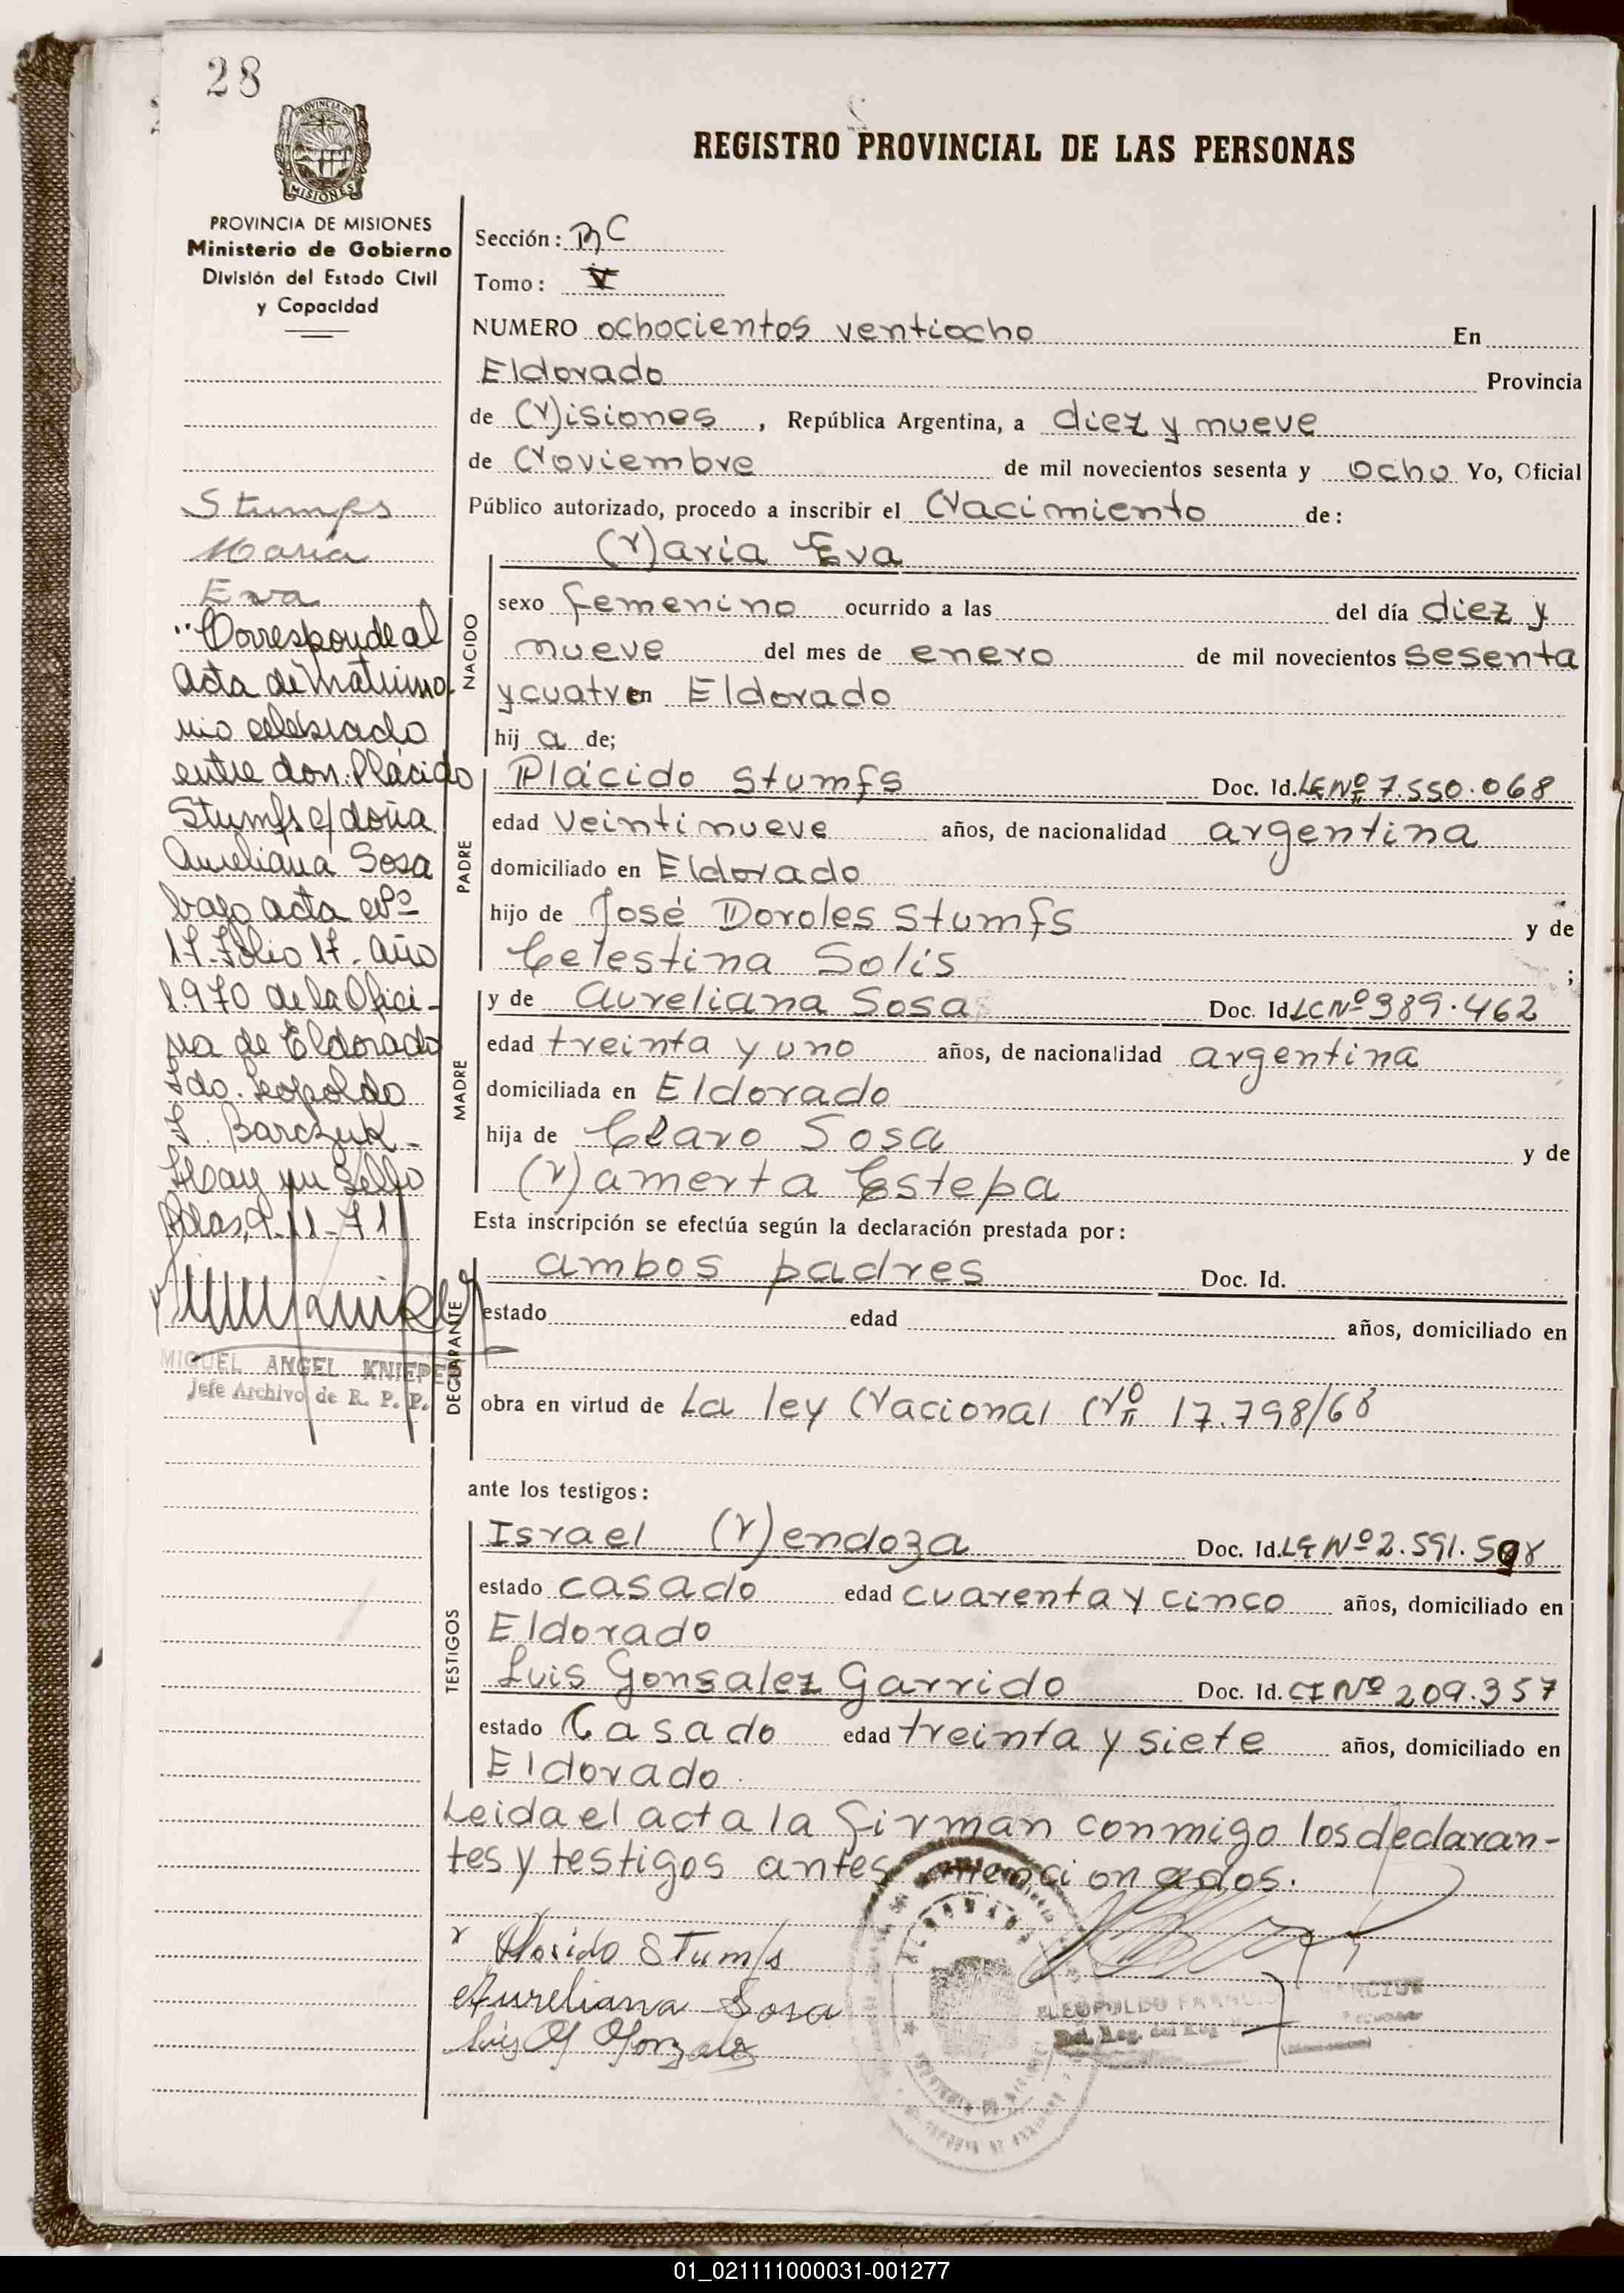 28
PROVINCIA DE
MISIONES
REGISTRO PROVINCIAL DE LAS PERSONAS
PROVINCIA DE MISIONES
Ministerio de Gobierno
División del Estado Civil
y Capacidad
Stumfs
María
Eva
"Corresponde al
Acta de Matrimo-
nio celebrado
entre don: Plácido
Stumfs c/ doña
Aureliana Sosa
bajo acta Nº
17-Folio 17-año
1.970 de la Ofici-
na de Eldorado
Fdo. Leopoldo
F. Barczuk-
Hay un Sello
Pdas, 9-11-71
MIGUEL ANGEL KNIEPE
Jefe Archivo de R. P. P.
Sección:
Tomo: V
NUMERO ochocientos ventiocho En
Eldorado Provincia
de Misiones, República Argentina, a diez y nueve
de Noviembre de mil novecientos sesenta y ocho Yo, Oficial
Público autorizado, procedo a inscribir el Nacimiento de:
María Eva
NACIDO
sexo femenino ocurrido a las del día diez y
nueve del mes de enero de mil novecientos sesenta
y cuatro en Eldorado
hij a de;
PADRE
Plácido Stumfs Doc. Id. LE Nº 7.550.068
edad veintinueve años, de nacionalidad argentina
domiciliado en Eldorado
hijo de José Doroles Stumfs y de
Celestina Solis ;
MADRE
y de Aureliana Sosa Doc. Id LC Nº 389.462
edad treinta y uno años, de nacionalidad argentina
domiciliada en Eldorado
hija de Claro Sosa y de
Mamerta Estepa
Esta inscripción se efectúa según la declaración prestada por:
DECLARANTE
ambos padres Doc. Id.
estado edad años, domiciliado en
obra en virtud de La ley Nacional Nº 17.798/68
ante los testigos:
TESTIGOS
Israel Mendoza Doc. Id. LE Nº 2.591.
estado casado edad cuarenta y cinco años, domiciliado en
Eldorado
Luis Gonsalez Garrido Doc. Id. CI Nº 209.357
estado Casado edad treinta y siete años, domiciliado en
Eldorado.
Leida el acta la firman conmigo los declaran-
tes y testigos antes mencionados.
Plasido Stumfs
Aureliana Sosa
Luis G Gonzalez
LEOPOLDO
01_021111000031-001277